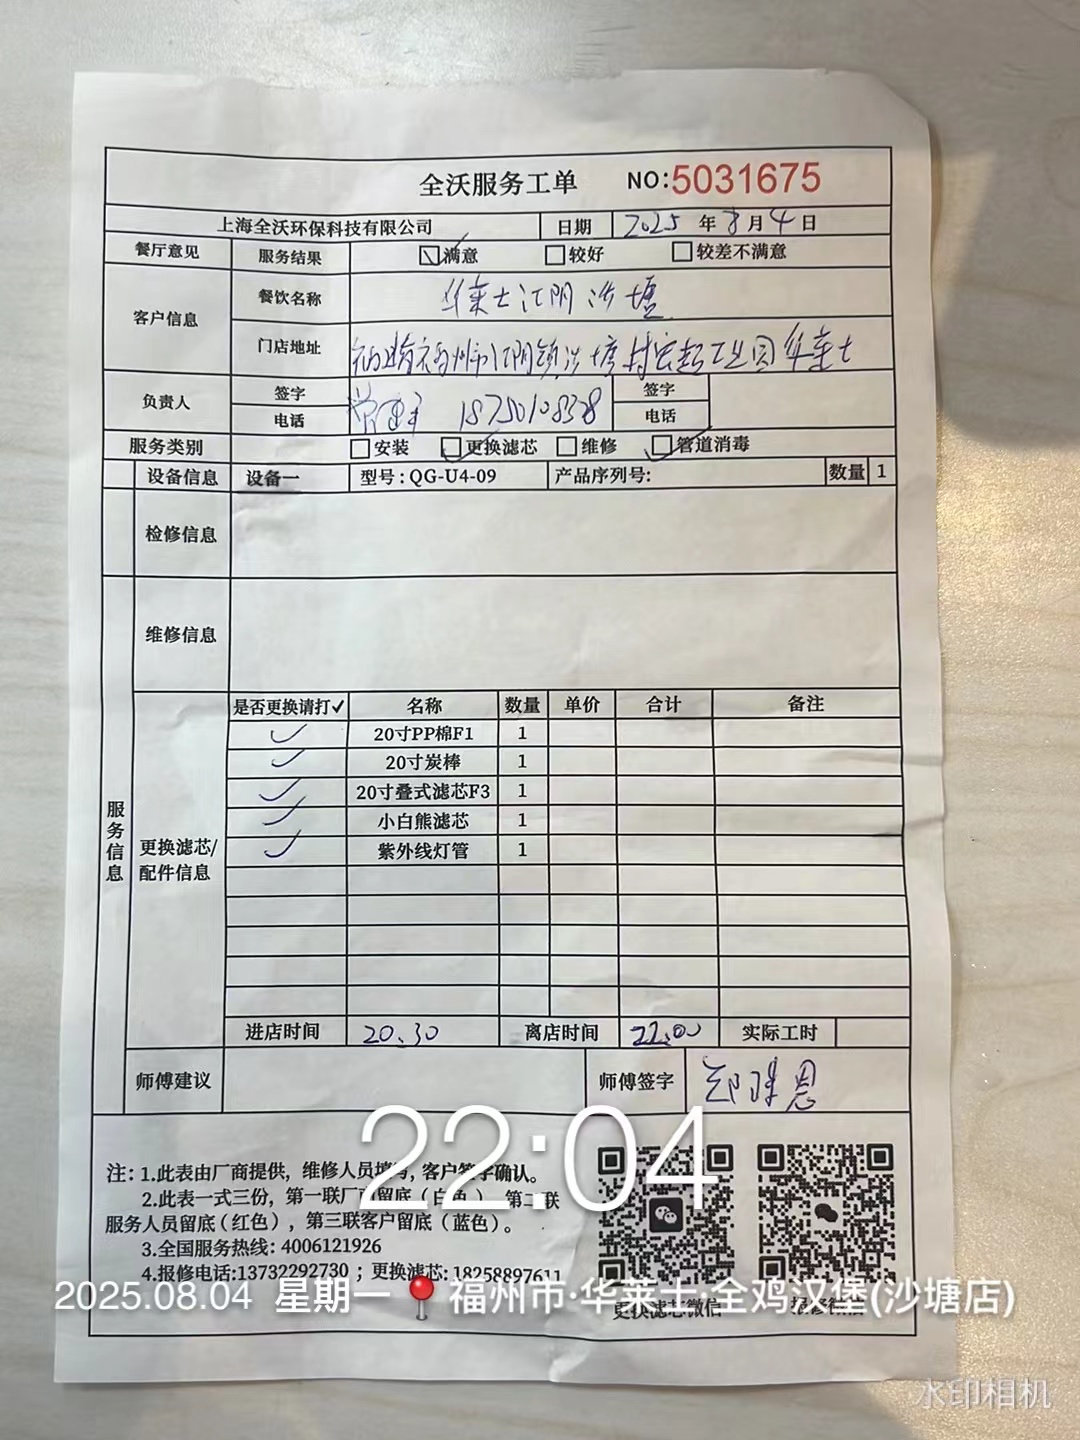 全沃服务工单 NO:5031675
上海全沃环保科技有限公司 日期 2025 年 8 月 4 日
餐厅意见 服务结果 满意 较好 较差不满意
客户信息 餐饮名称 华莱士江阴沙塘
门店地址 福建省福州市江阴镇沙塘村宏超工业园华莱士
负责人 签字 签字
电话 18750108338 电话
服务类别 安装 更换滤芯 维修 管道消毒
设备信息 设备一 型号:QG-U4-09 产品序列号: 数量 1
检修信息
维修信息
服务信息
更换滤芯/配件信息
是否更换请打✓ 名称 数量 单价 合计 备注
✓ 20寸PP棉F1 1
✓ 20寸炭棒 1
✓ 20寸叠式滤芯F3 1
✓ 小白熊滤芯 1
✓ 紫外线灯管 1
进店时间 20.30 离店时间 22:00 实际工时
师傅建议 师傅签字
22:04
注：1.此表由厂商提供，维修人员填写，客户签字确认。
2.此表一式三份，第一联厂商留底（白色），第二联
服务人员留底（红色），第三联客户留底（蓝色）。
3.全国服务热线：4006121926
4.报修电话:13732292730；更换滤芯:18258897611
更换滤芯微信 报修微信
2025.08.04 星期一 福州市·华莱士·全鸡汉堡(沙塘店)
水印相机